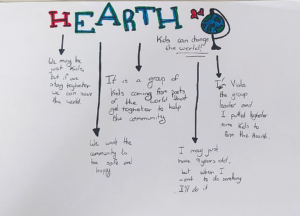 HEARTH
Kids can change
the world!
We may be
just kids,
but if we
stay together
we can save
the world.
It is a group of
kids coming from parts
of the world
get together to help
the community
We want the
community to
be safe and
happy
I may just
nine years old,
but when I
want to do something
I'll do it
I'm Viola
the group
leader and
I putted together
some kids to
form the Hearth.